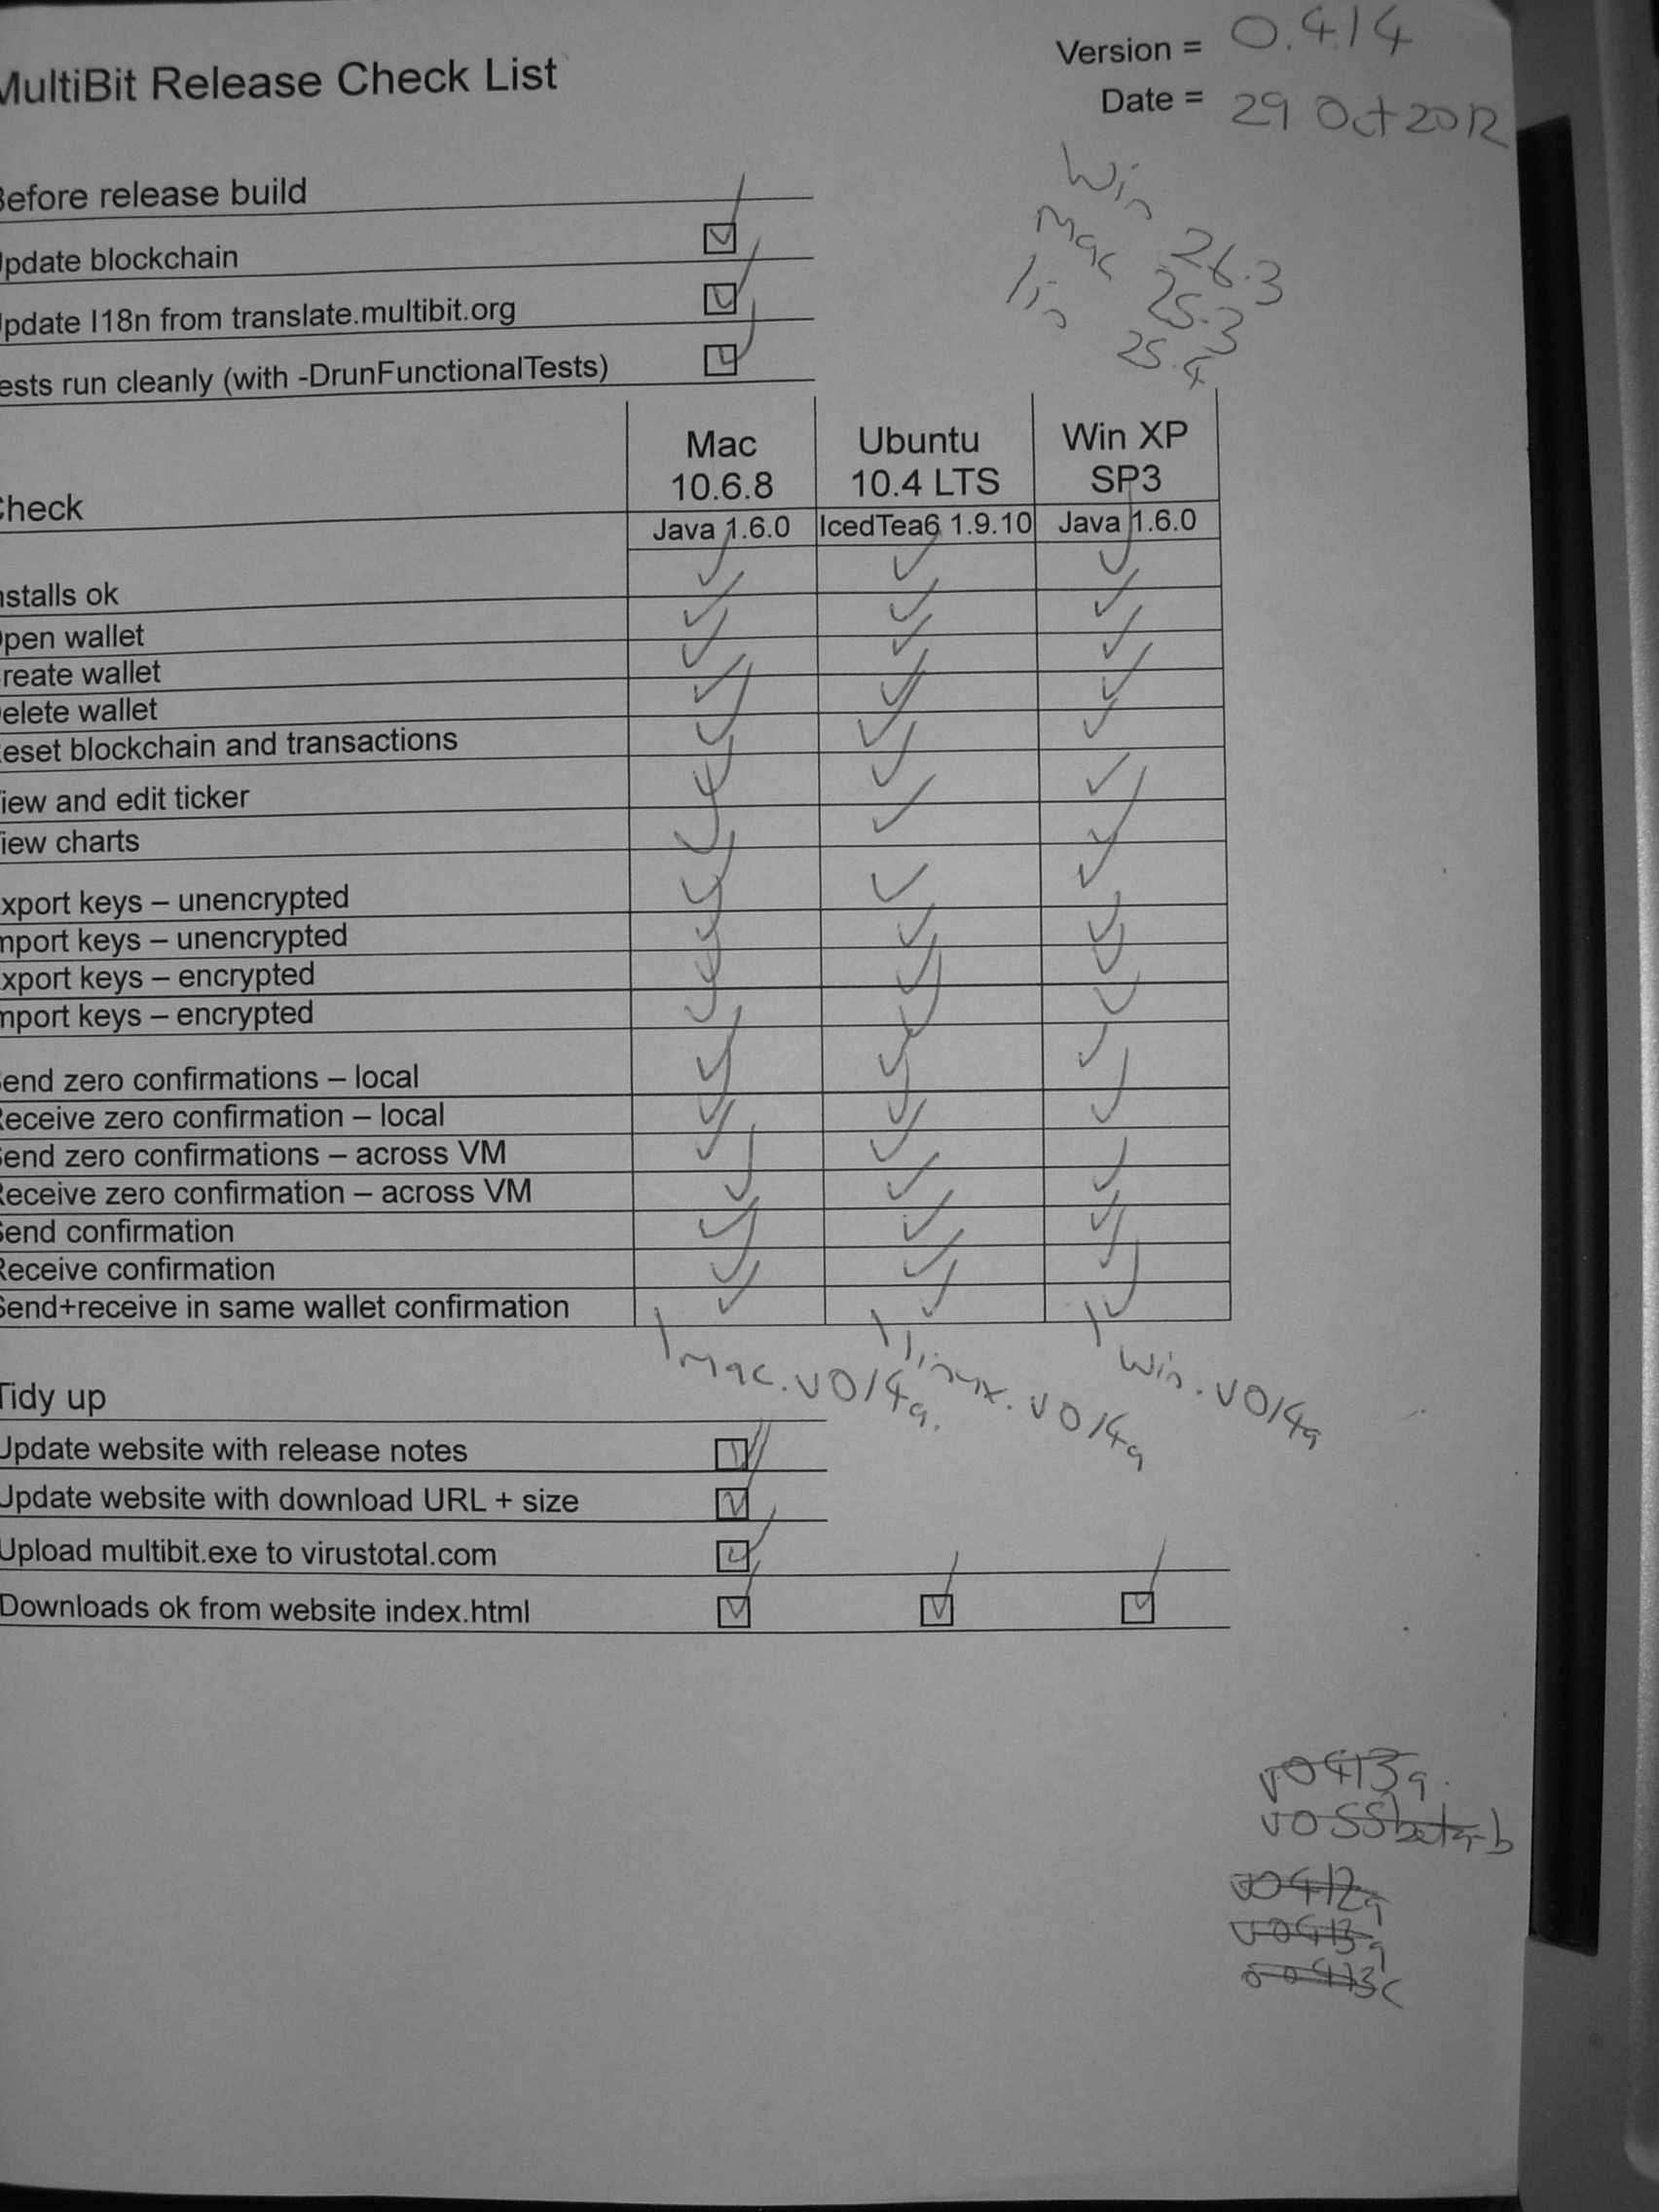 MultiBit Release Check List
Version = 0.4.14
Date = 29 Oct 2012
Win 26.3
Mac 25.3
lin 25.4
Before release build
pdate blockchain
pdate I18n from translate.multibit.org
ests run cleanly (with -DrunFunctionalTests)
Check
Mac 10.6.8
Ubuntu 10.4 LTS
Win XP SP3
Java 1.6.0
IcedTea6 1.9.10
Java 1.6.0
nstalls ok
pen wallet
reate wallet
elete wallet
eset blockchain and transactions
iew and edit ticker
iew charts
xport keys – unencrypted
mport keys – unencrypted
xport keys – encrypted
mport keys – encrypted
end zero confirmations – local
Receive zero confirmation – local
Send zero confirmations – across VM
Receive zero confirmation – across VM
Send confirmation
Receive confirmation
Send+receive in same wallet confirmation
mac.v014a.
linux.v014a
win.v014a
Tidy up
Update website with release notes
Update website with download URL + size
Upload multibit.exe to virustotal.com
Downloads ok from website index.html
v0413a.
v055beta-b
v0412a
v0413a